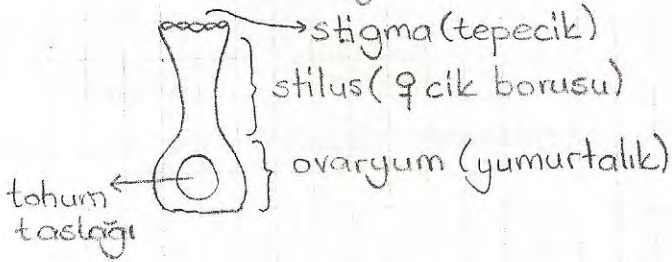 stigma (tepecik)
stilus (♀ cik borusu)
ovaryum (yumurtalık)
tohum
taslağı